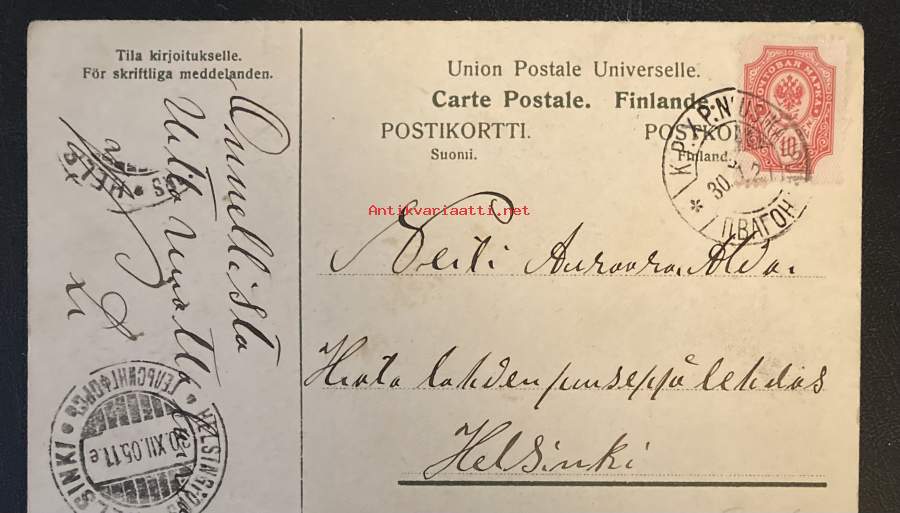 Tila kirjoitukselle.
För skriftliga meddelanden.
Onnellista
Uutta vuotta
Union Postale Universelle.
Carte Postale. Finlande.
POSTIKORTTI. POSTKORT
Suomi. Finland.
ПОЧТОВАЯ МАРКА
10
K.P.X.P.N:
30.
П.ВАГОНЪ
Antikvariaatti.net
Neiti Aurora Alda
Hietalahden puuseppätehdas
Helsinki
HELSINGFORS
ГЕЛЬСИНГФОРСЪ
HELSINKI
XII.05.11 e